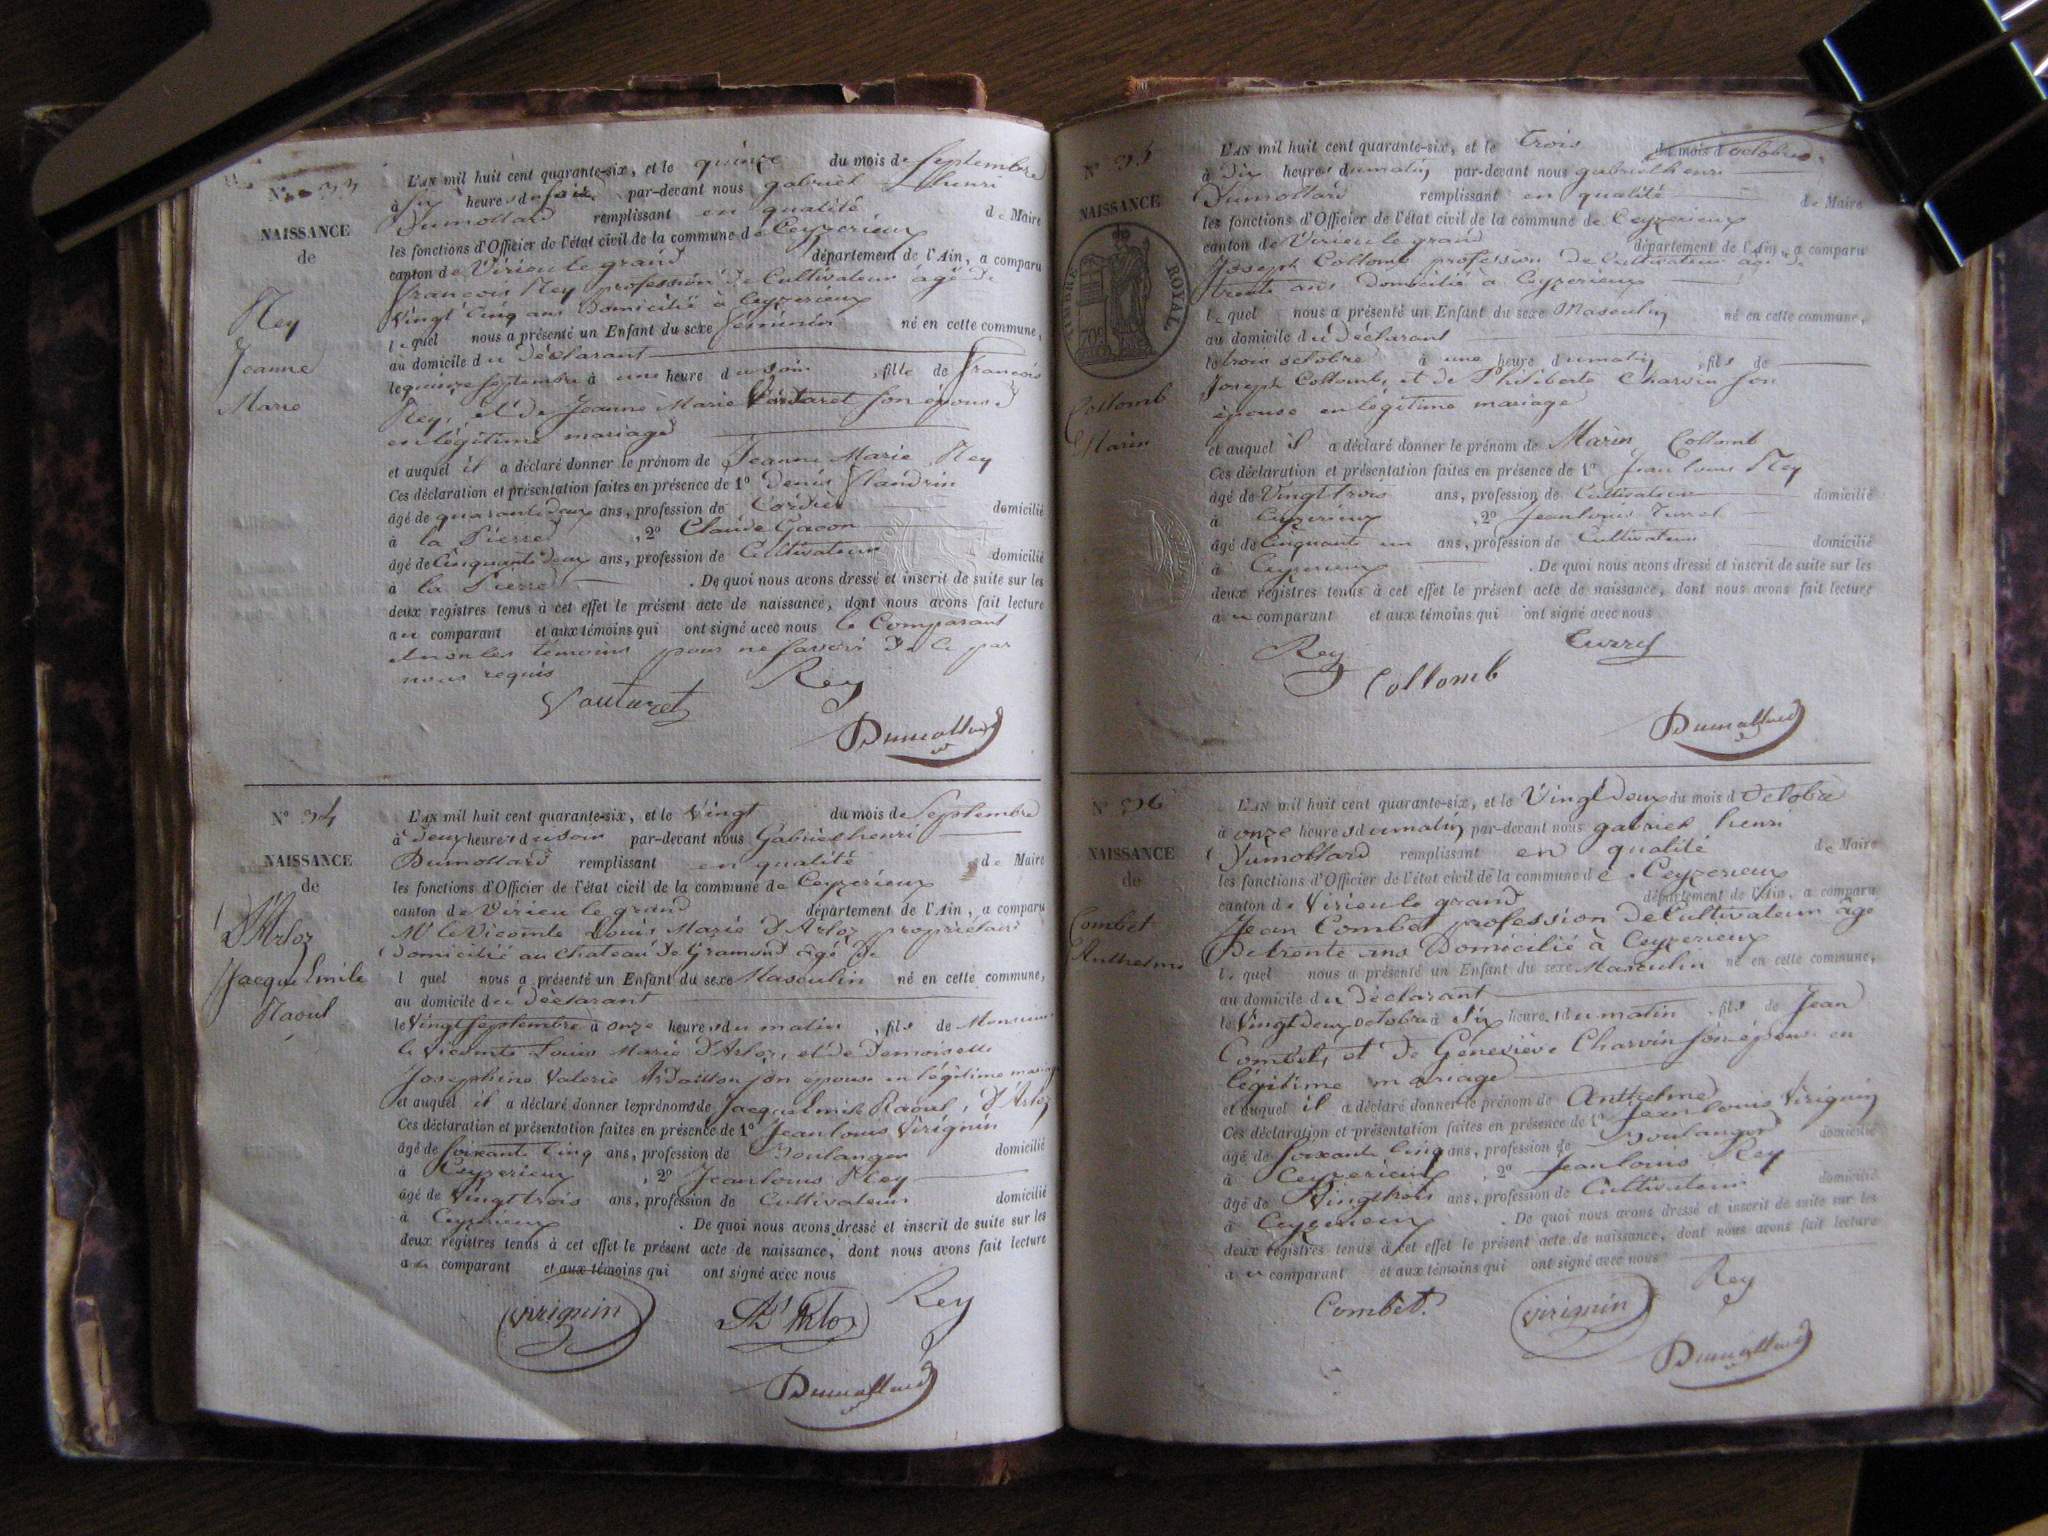 N° 33
NAISSANCE
de
Rey
Jeanne
Marie
L'AN mil huit cent quarante-six, et le quinze du mois de Septembre
à six heures de soir par-devant nous gabriel henri
Dumollard remplissant en qualité de Maire
les fonctions d'Officier de l'état civil de la commune de Ceyzerieux
canton de Virieu le grand département de l'Ain, a comparu
françois Rey profession de Cultivateur âgé de
Vingt Cinq ans Domicilié à Ceyzerieux
lequel nous a présenté un Enfant du sexe féminin né en cette commune,
au domicile du Déclarant
le quinze Septembre à une heure du soir, fille de françois
Rey, et de Jeanne Marie Voutaret son épouse
en légitime mariage
et auquel il a déclaré donner le prénom de Jeanne Marie Rey
Ces déclaration et présentation faites en présence de 1° Denis flandrin
âgé de quarante deux ans, profession de Cordier domicilié
à la Pierre, 2° Claude Gacon
âgé de Cinquante deux ans, profession de Cultivateur domicilié
à la Pierre. De quoi nous avons dressé et inscrit de suite sur les
deux registres tenus à cet effet le présent acte de naissance, dont nous avons fait lecture
au comparant et aux témoins qui ont signé avec nous le Comparant
et non les témoins pour ne savoir de ce par
nous requis
Voutaret Rey
Dumollard
N° 34
NAISSANCE
de
D'Arloz
Jacque Emile
Raoul
L'AN mil huit cent quarante-six, et le Vingt du mois de Septembre
à deux heures du soir par-devant nous Gabriel henri
Dumollard remplissant en qualité de Maire
les fonctions d'Officier de l'état civil de la commune de Ceyzerieux
canton de Virieu le grand département de l'Ain, a comparu
Mr le Vicomte Louis Marie D'Arloz propriétaire
domicilié au Chateau de Gramond âgé de
lequel nous a présenté un Enfant du sexe Masculin né en cette commune,
au domicile du Déclarant
le Vingt Septembre à onze heures du matin, fils de Monsieur
le Vicomte Louis Marie D'Arloz, et de Demoiselle
Josephine Valerie son épouse en légitime mariage
et auquel il a déclaré donner les prénoms de Jacque Emile Raoul, D'Arloz
Ces déclaration et présentation faites en présence de 1° Jean louis Virignin
âgé de soixante Cinq ans, profession de Boulanger domicilié
à Ceyzerieux, 2° Jean louis Rey
âgé de Vingt trois ans, profession de Cultivateur domicilié
à Ceyzerieux. De quoi nous avons dressé et inscrit de suite sur les
deux registres tenus à cet effet le présent acte de naissance, dont nous avons fait lecture
au comparant et aux témoins qui ont signé avec nous
Virignin D'Arloz Rey
Dumollard
N° 35
NAISSANCE
TIMBRE ROYAL
Collomb
Marin
L'AN mil huit cent quarante-six, et le trois du mois d'octobre
à dix heures du matin par-devant nous gabriel henri
Dumollard remplissant en qualité de Maire
les fonctions d'Officier de l'état civil de la commune de Ceyzerieux
canton de Virieu le grand département de l'Ain, a comparu
Joseph Collomb profession de Cultivateur âgé de
trente ans Domicilié à Ceyzerieux
lequel nous a présenté un Enfant du sexe Masculin né en cette commune,
au domicile du Déclarant
le trois octobre à une heure du matin, fils de
Joseph Collomb, et de Philiberte Charvin son
épouse en légitime mariage
et auquel il a déclaré donner le prénom de Marin Collomb
Ces déclaration et présentation faites en présence de 1° Jean louis Rey
âgé de Vingt trois ans, profession de Cultivateur domicilié
à Ceyzerieux, 2° Jean louis Turrel
âgé de Cinquante un ans, profession de Cultivateur domicilié
à Ceyzerieux. De quoi nous avons dressé et inscrit de suite sur les
deux registres tenus à cet effet le présent acte de naissance, dont nous avons fait lecture
au comparant et aux témoins qui ont signé avec nous
Rey Collomb Turrel
Dumollard
N° 36
NAISSANCE
de
Combet
Anthelme
L'AN mil huit cent quarante-six, et le Vingt Deux du mois d'Octobre
à onze heures du matin par-devant nous gabriel henri
Dumollard remplissant en qualité de Maire
les fonctions d'Officier de l'état civil de la commune de Ceyzerieux
canton de Virieu le grand département de l'Ain, a comparu
Jean Combet profession de Cultivateur âgé
de trente ans Domicilié à Ceyzerieux
lequel nous a présenté un Enfant du sexe Masculin né en cette commune,
au domicile du Déclarant
le Vingt Deux octobre à Six heures du matin, fils de Jean
Combet, et de Geneviève Charvin son épouse en
légitime mariage
et auquel il a déclaré donner le prénom de Anthelme
Ces déclaration et présentation faites en présence de 1° Jean louis Virignin
âgé de soixante Cinq ans, profession de Boulanger domicilié
à Ceyzerieux, 2° Jean louis Rey
âgé de Vingt trois ans, profession de Cultivateur domicilié
à Ceyzerieux. De quoi nous avons dressé et inscrit de suite sur les
deux registres tenus à cet effet le présent acte de naissance, dont nous avons fait lecture
au comparant et aux témoins qui ont signé avec nous
Combet. Virignin Rey
Dumollard